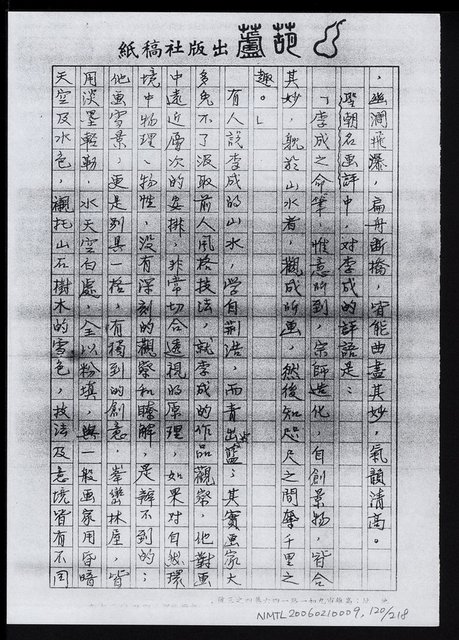 葫蘆出版社稿紙
，幽澗飛瀑，扁舟斷橋，皆能曲盡其妙，氣韻清高。
聖朝名畫評中，對李成的評語是：
「李成之命筆，惟意所到，宗師造化，自創景物，皆合
其妙，耽於山水者，觀成所畫，然後知咫尺之間奪千里之
趣。」
有人說李成的山水，學自荆浩，而青出於藍；其實畫家大
多免不了汲取前人風格技法，就李成的作品觀察，他對畫
中遠近層次的安排，非常切合透視的原理，如果对自然環
境中物理、物性，沒有深刻的觀察和瞭解，是辦不到的；
他画雪景，更是别具一格，有獨到的創意，峯巒林屋，皆
用淡墨輕勒，水天空白處，全以粉填，與一般画家用昏暗
天空及水色，襯托山石樹木的雪色，技法及意境皆有不同
NMTL20060210009, 120/218